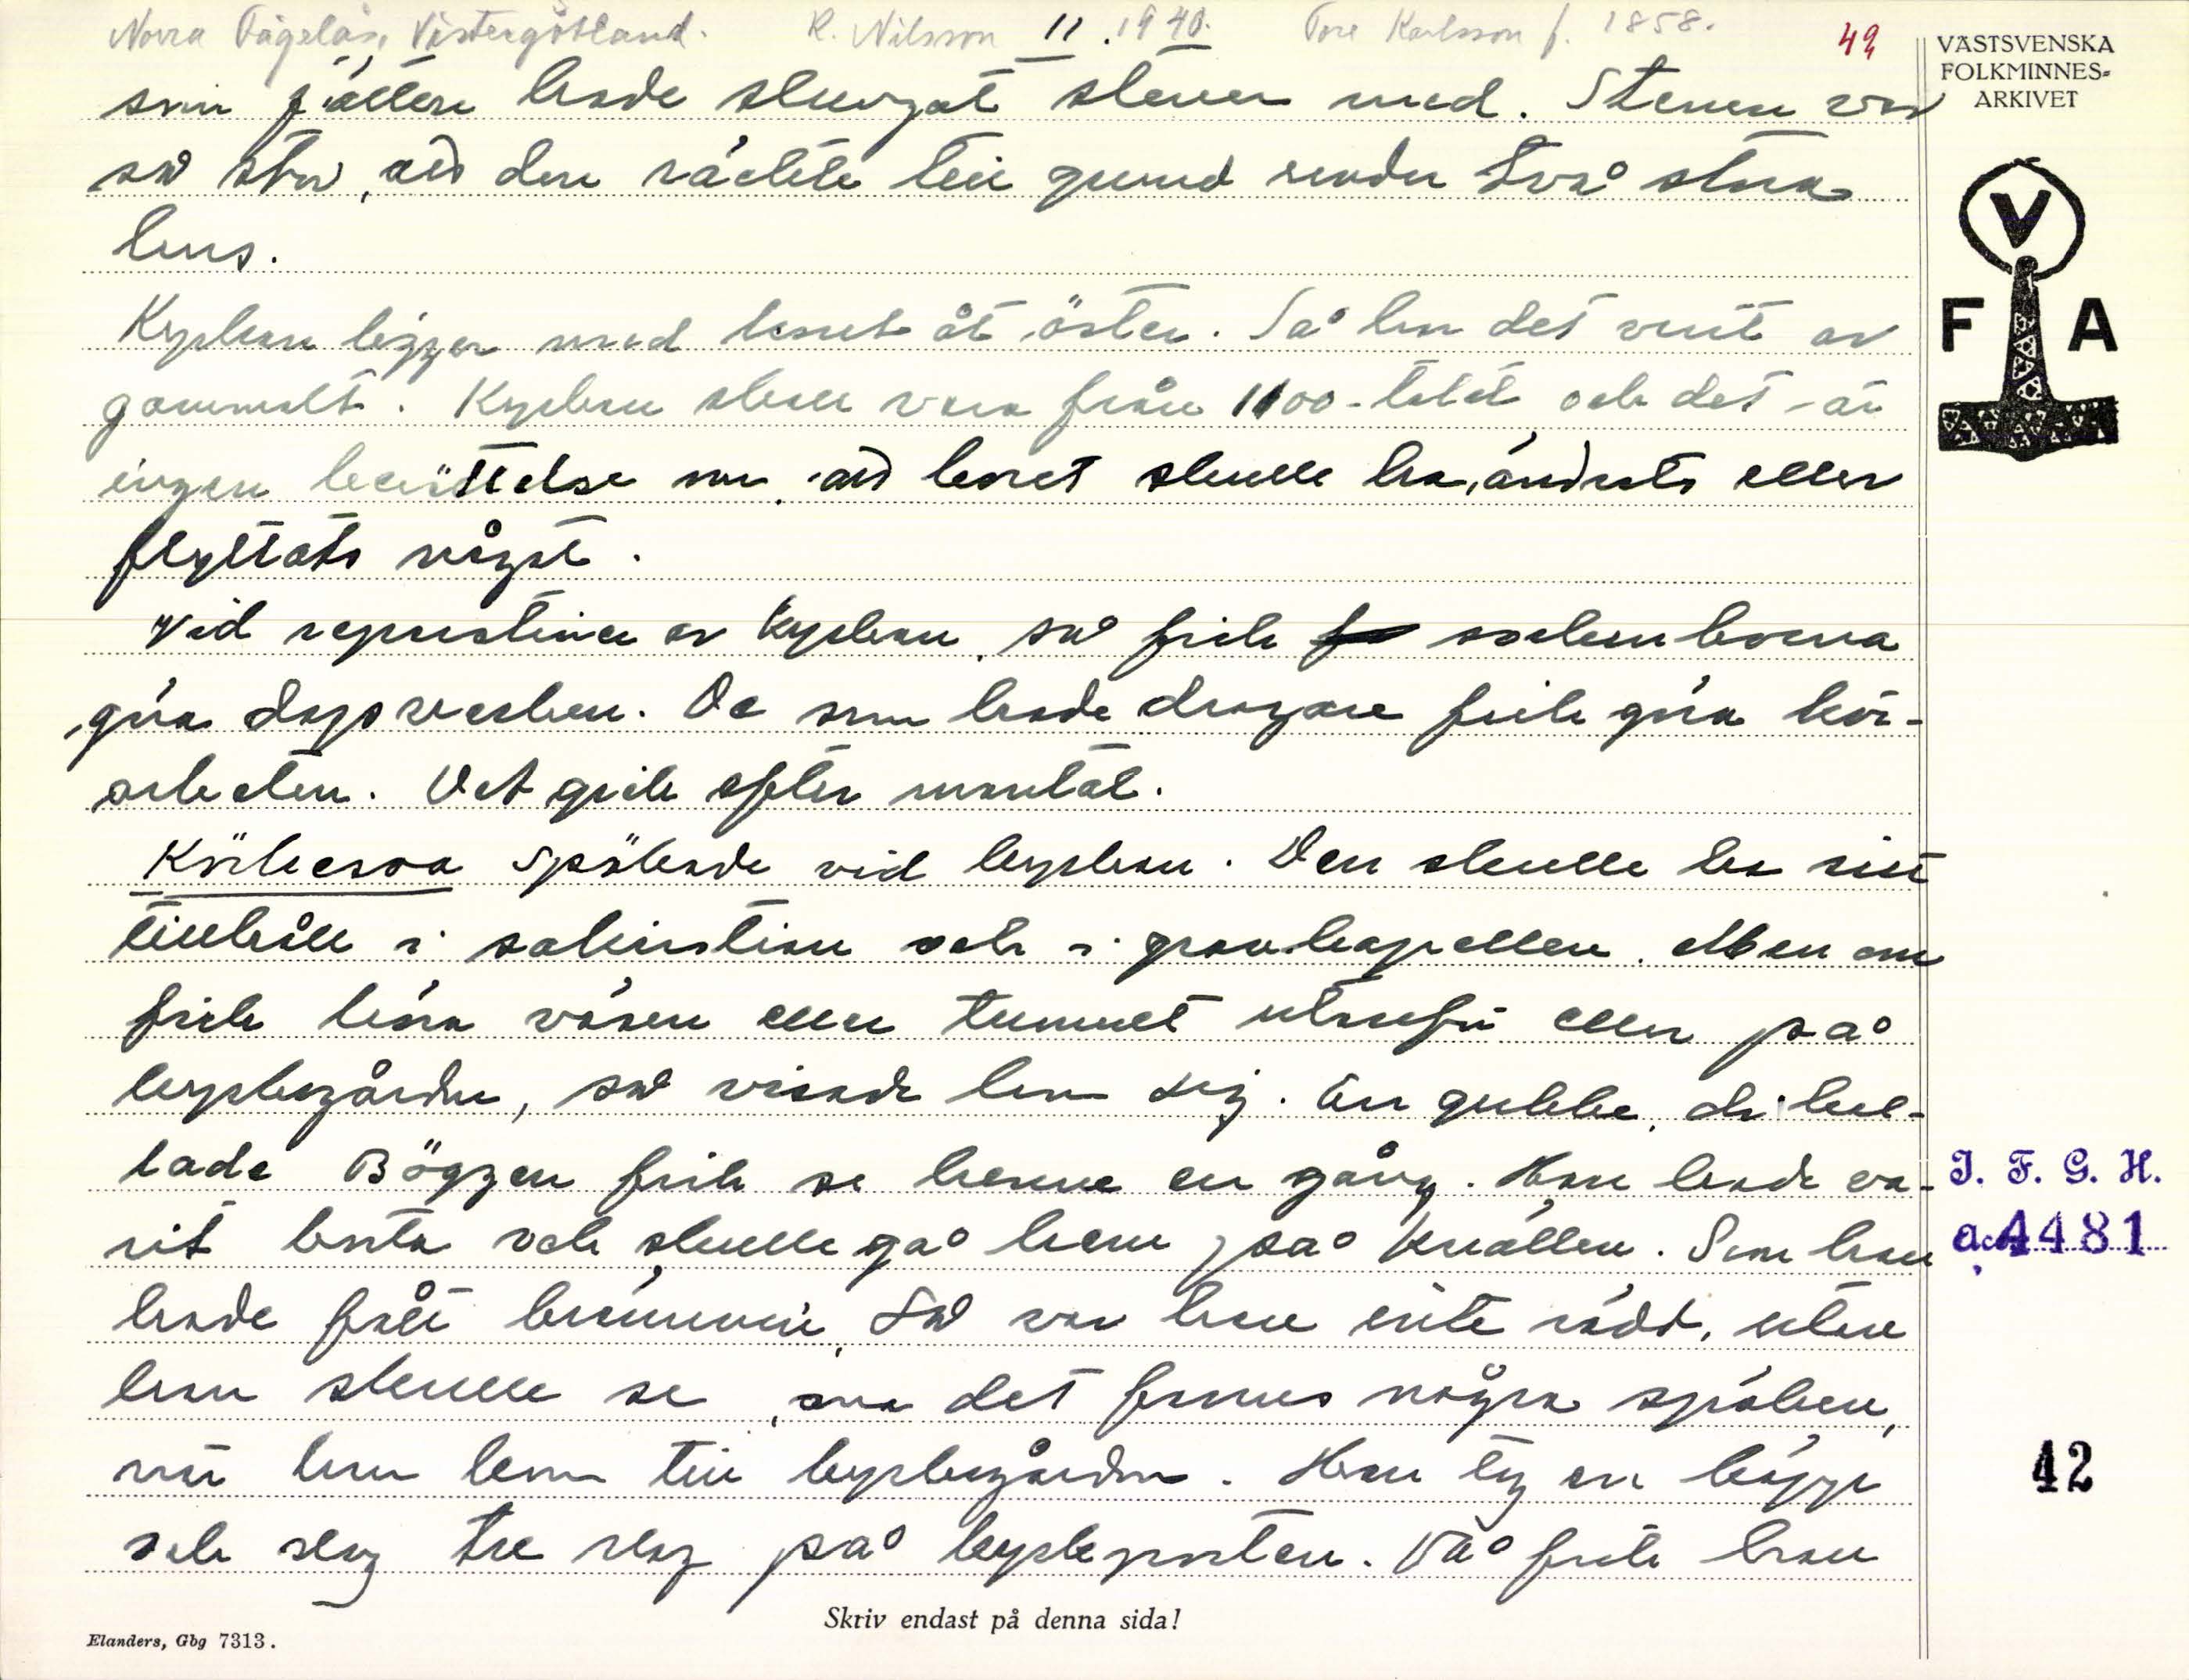 Norra Fågelås, Västergötland. R. Nilsson 11.1940. Tore Karlsson f. 1858. 42
VÄSTSVENSKA
FOLKMINNES=
ARKIVET
som jätten hade slungat stenen med. Stenen var
så stor, att den räckte till grund under två stora
hus.
V
F A
Kyrkan ligger med koret åt öster. Så har det varit av
gammalt. Kyrkan skall vara från 1100-talet och det är
ingen berättelse om, att koret skulle ha ändrats eller
flyttats något.
Vid reparation av kyrkan, så fick socknenborna
göra dagsverken. De som hade dragare fick göra kör-
arbeten. Det gick efter mantal.
Körkesoa spökade vid kyrkan. Den skulle ha sitt
tillhåll i sakristian och i gravkapellen. Men en
fick höra väsen eller tumult utanför eller på
kyrkogården, så visade hon sig. En gubbe, di kal-
lade Böggen fick se henne en gång. Han hade va-
rit borta och skulle gå hem på kvällen. Som han
hade fått brännvin, så var han inte rädd, utan
han skulle se, om det fanns några spöken,
när han kom till kyrkogården. Han tog en käpp
och slog tre slag på kyrkporten. Då fick han
I. F. G. H.
acc 4481
42
Skriv endast på denna sida!
Elanders, Gbg 7313.